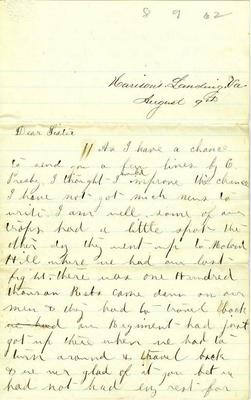 8 9 62
Harisons Landing, Va
August 9th
Dear Sister
As I have a chance
to send you a few lines by C
Presby, I thought I would improve the chance
I have not got much news to
write. I am well. some of our
troops had a little spat the
other day they went up to Molvern
Hill where we had our last
fight. there was one Hundred
thousan Rebs came down on our
men & they had to travel back
our Regment had just
got up there when we had to
turn around & travel back
& we wer glad of it you bet we
had not had eny rest for